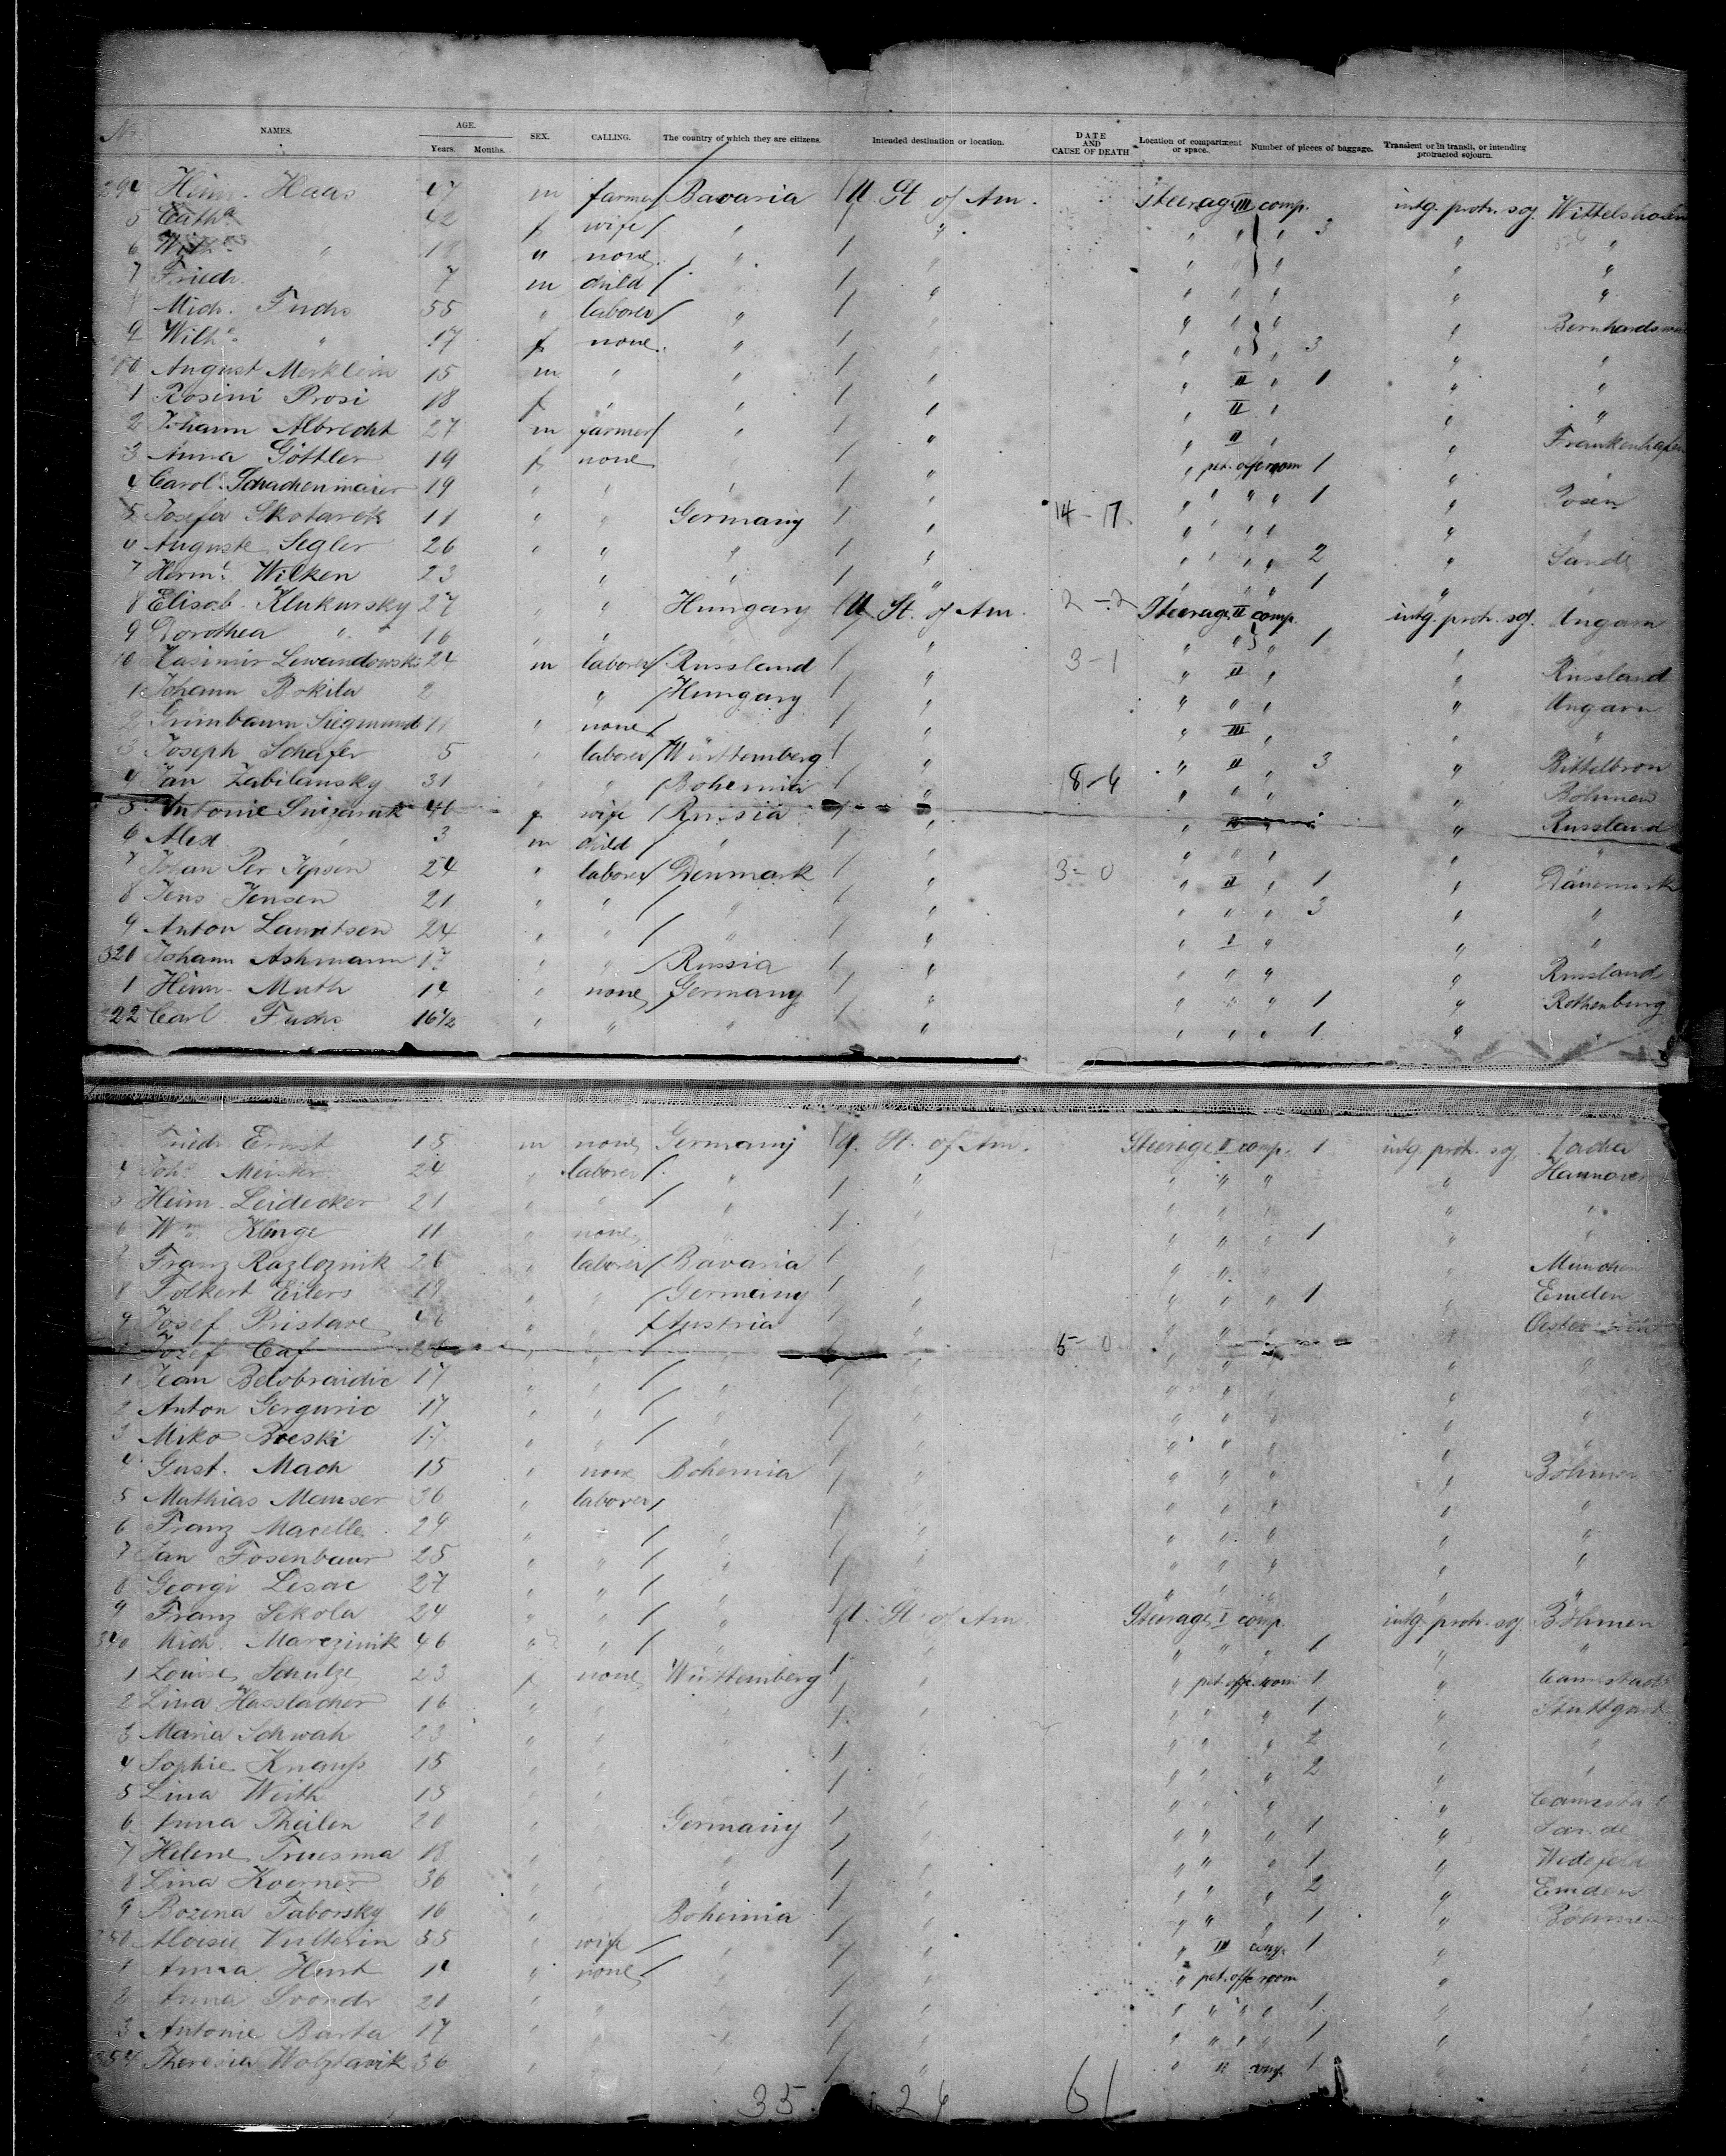 No. NAMES. AGE. Years. Months. SEX. CALLING. The country of which they are citizens. Intended destination or location. DATE AND CAUSE OF DEATH Location of compartment or space. Number of pieces of baggage. Transient or in transit, or intending protracted sojourn.
294 Heinr. Haas 47 m farmer Bavaria U. St. of Am. Steerage III comp. intg. protr. soj. Wittelshofen
5 Cathe " 42 f wife " " " " " 3 " "
6 Wilhe " 18 " none " " " " " " "
7 Friedr. 7 m child " " " " " "
8 Mich. Fuchs 55 " laborer " " " " " " Bernhardswi
9 Wilhe " 17 f none " " " " 3 " "
300 August Merklein 15 m " " " " II " 1 " "
1 Rosini Prosi 18 f " " " " II " " "
2 Johann Albrecht 27 m farmer " " " II " " Frankenhofen
3 Anna Göttler 19 f none " " " pet. offc room 1 "
4 Carole Schachenmaier 19 " " " " " " " " 1 " Posen
5 Josefa Skotarek 11 " " Germany " 14 - 17 " " " " "
6 Auguste Segler 26 " " " " " " " " 2 " Sande
7 Herme Wilken 23 " " " " " " " 1 "
8 Elisab. Klukursky 27 " " Hungary U. St. of Am. 2 - 2 Steerage II comp. intg. protr. soj. Ungarn
9 Dorothea " 16 " " " " " " 1 "
10 Kasimir Lewandowski 24 m laborer Russland " 3 - 1 " II " " Russland
1 Johann Bokila 2 " Hungary " " " " " Ungarn
2 Grünbaum Siegmund 11 " none " " III " " "
3 Joseph Schäfer 5 " laborer Württemberg " " II " 3 " Bittelbron
4 Jan Zabilansky 31 " " Bohemia " 8 - 6 " " " " Böhmen
5 Antonie 40 f wife Russia " " III " " Russland
6 Alex " 3 m child " " " " " " "
7 Johan Per Jepsen 24 " laborer Denmark " 3 - 0 " II " 1 " Dänemark
8 Jens Jensen 21 " " " " " " " 3 " "
9 Anton Lauritsen 24 " " " " " I " " "
320 Johann Ashmann 17 " " Russia " " " " " Russland
1 Heinr. Muth 14 " none Germany " " " " 1 " Rothenburg
322 Carl Fuchs 16½ " " " " " " " 1 " "
Friedr. Ernst 15 m none Germany U. St. of Am. Steerage I comp. 1 intg. protr. soj.
4 Johs Meister 24 " laborer " " " " " " Hannover
5 Heinr. Leidecker 21 " " " " " " " " "
6 Wm Klinge 11 " none " " " " 1 " "
7 Franz Razloznik 26 " laborer Bavaria " " " " München
8 Folkert Eilers 19 " " Germany " " " " 1 " Emden
9 Josef Pristave 46 " " Austria " " " "
Josef Caf " " " " 5 - 0 " " " " "
1 Jean Belobraidic 17 " " " " " " " " "
2 Anton Gerguric 17 " " " " " " " " "
3 Miko 17 " " " " " " " " "
4 Gust. Mach 15 " none Bohemia " " " " " Böhmen
5 Mathias Manser 36 " laborer " " " " " "
6 Franz Macelle 29 " " " " " " " " "
7 Jan Fosenbaur 25 " " " " " " " " "
8 Georgi Lesac 27 " " " " " " " "
9 Franz Sekola 24 " " " U. St. of Am. Steerage I comp. intg. protr. soj. Böhmen
340 Mich. Marezinik 46 " " " " " " " 1 " "
1 Louise Schulze 23 f none Württemberg " " pet. offc. room 1 " Cannstadt
2 Lina Hasslacher 16 " " " " " " " 1 " Stuttgart
3 Maria Schwah 23 " " " " " " " 2 " "
4 Sophie Knauss 15 " " " " " " 2 " "
5 Lina Weith 15 " " " " " " " Cannstadt
6 Anna Theilen 20 " " Germany " " " " 1 " Sande
7 Helene Truesma 18 " " " " " " " 1 "
8 Lina Koerner 36 " " " " " " " 2 " Emden
9 Bozena Taborsky 16 " Bohemia " " " " 1 " Böhmen
350 Aloisie 55 " wife " " " III comp. 1 "
1 Anna 14 " none " " " pet. offc room "
2 Anna 20 " " " " " " " " 1 " "
3 Antonie Barta 17 " " " " " " " " 1 " "
354 Theresia 36 " " " " " II comp. 1 " "
35 26 61